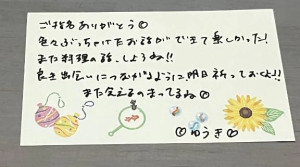 ご指名ありがとう☺
色々ぶっちゃけたお話ができて楽しかった!
また料理の話、しようね!!
良き出会いにつながるように、明日祈っておくよ!!
また会えるのまってるね☺
♡ゆうき♡